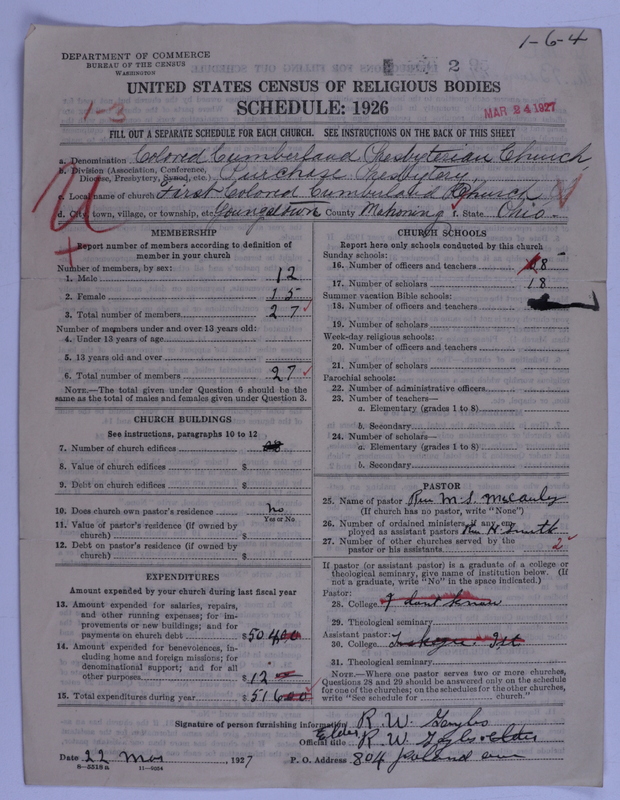 1-6-4
DEPARTMENT OF COMMERCE
BUREAU OF THE CENSUS
WASHINGTON
2
UNITED STATES CENSUS OF RELIGIOUS BODIES
SCHEDULE: 1926
1-3
MAR 24 1927
FILL OUT A SEPARATE SCHEDULE FOR EACH CHURCH. SEE INSTRUCTIONS ON THE BACK OF THIS SHEET
a. Denomination Colored Cumberland Presbyterian Church
b. Division (Association, Conference, Diocese, Presbytery, Synod, etc.) Purchase Presbytery
c. Local name of church First Colored Cumberland Church
d. City, town, village, or township, etc. Youngstown County Mahoning f. State Ohio
MEMBERSHIP
Report number of members according to definition of
member in your church
Number of members, by sex:
1. Male 12
2. Female 15
3. Total number of members 27
Number of members under and over 13 years old:
4. Under 13 years of age
5. 13 years old and over
6. Total number of members 27
NOTE.—The total given under Question 6 should be the
same as the total of males and females given under Question 3.
CHURCH BUILDINGS
See instructions, paragraphs 10 to 12
7. Number of church edifices
8. Value of church edifices $
9. Debt on church edifices $
10. Does church own pastor's residence No
Yes or No
11. Value of pastor's residence (if owned by
church) $
12. Debt on pastor's residence (if owned by
church) $
EXPENDITURES
Amount expended by church during last fiscal year
13. Amount expended for salaries, repairs,
and other running expenses; for im-
provements or new buildings; and for
payments on church debt $504 00
14. Amount expended for benevolences, in-
cluding home and foreign missions; for
denominational support; and for all
other purposes $12
15. Total expenditures during year $516 00
CHURCH SCHOOLS
Report here only schools conducted by this church
Sunday schools:
16. Number of officers and teachers 8
17. Number of scholars 18
Summer vacation Bible schools:
18. Number of officers and teachers
19. Number of scholars
Week-day religious schools:
20. Number of officers and teachers
21. Number of scholars
Parochial schools:
22. Number of administrative officers
23. Number of teachers—
a. Elementary (grades 1 to 8)
b. Secondary
24. Number of scholars—
a. Elementary (grades 1 to 8)
b. Secondary
PASTOR
25. Name of pastor Rev M. S. McCauly
(If church has no pastor, write "None")
26. Number of ordained ministers, if any, em-
ployed as assistant pastors Rev H. Smith
27. Number of other churches served by the
pastor or his assistants 2
If pastor (or assistant pastor) is a graduate of a college or
theological seminary, give name of institution below. (If
not a graduate, write "No" in the space indicated.)
Pastor:
28. College I dont know
29. Theological seminary
Assistant pastor:
30. College Tuskegee Ist
31. Theological seminary
NOTE.—Where one pastor serves two or more churches,
Questions 28 and 29 should be answered only on the schedule
for one of the churches; on the schedules for the other churches,
write "See schedule for church."
Signature of person furnishing information R. W.
Official title Elder R. W. Elder
Date 22 Mar, 1927 P. O. Address 804
8-5518a 11-9054